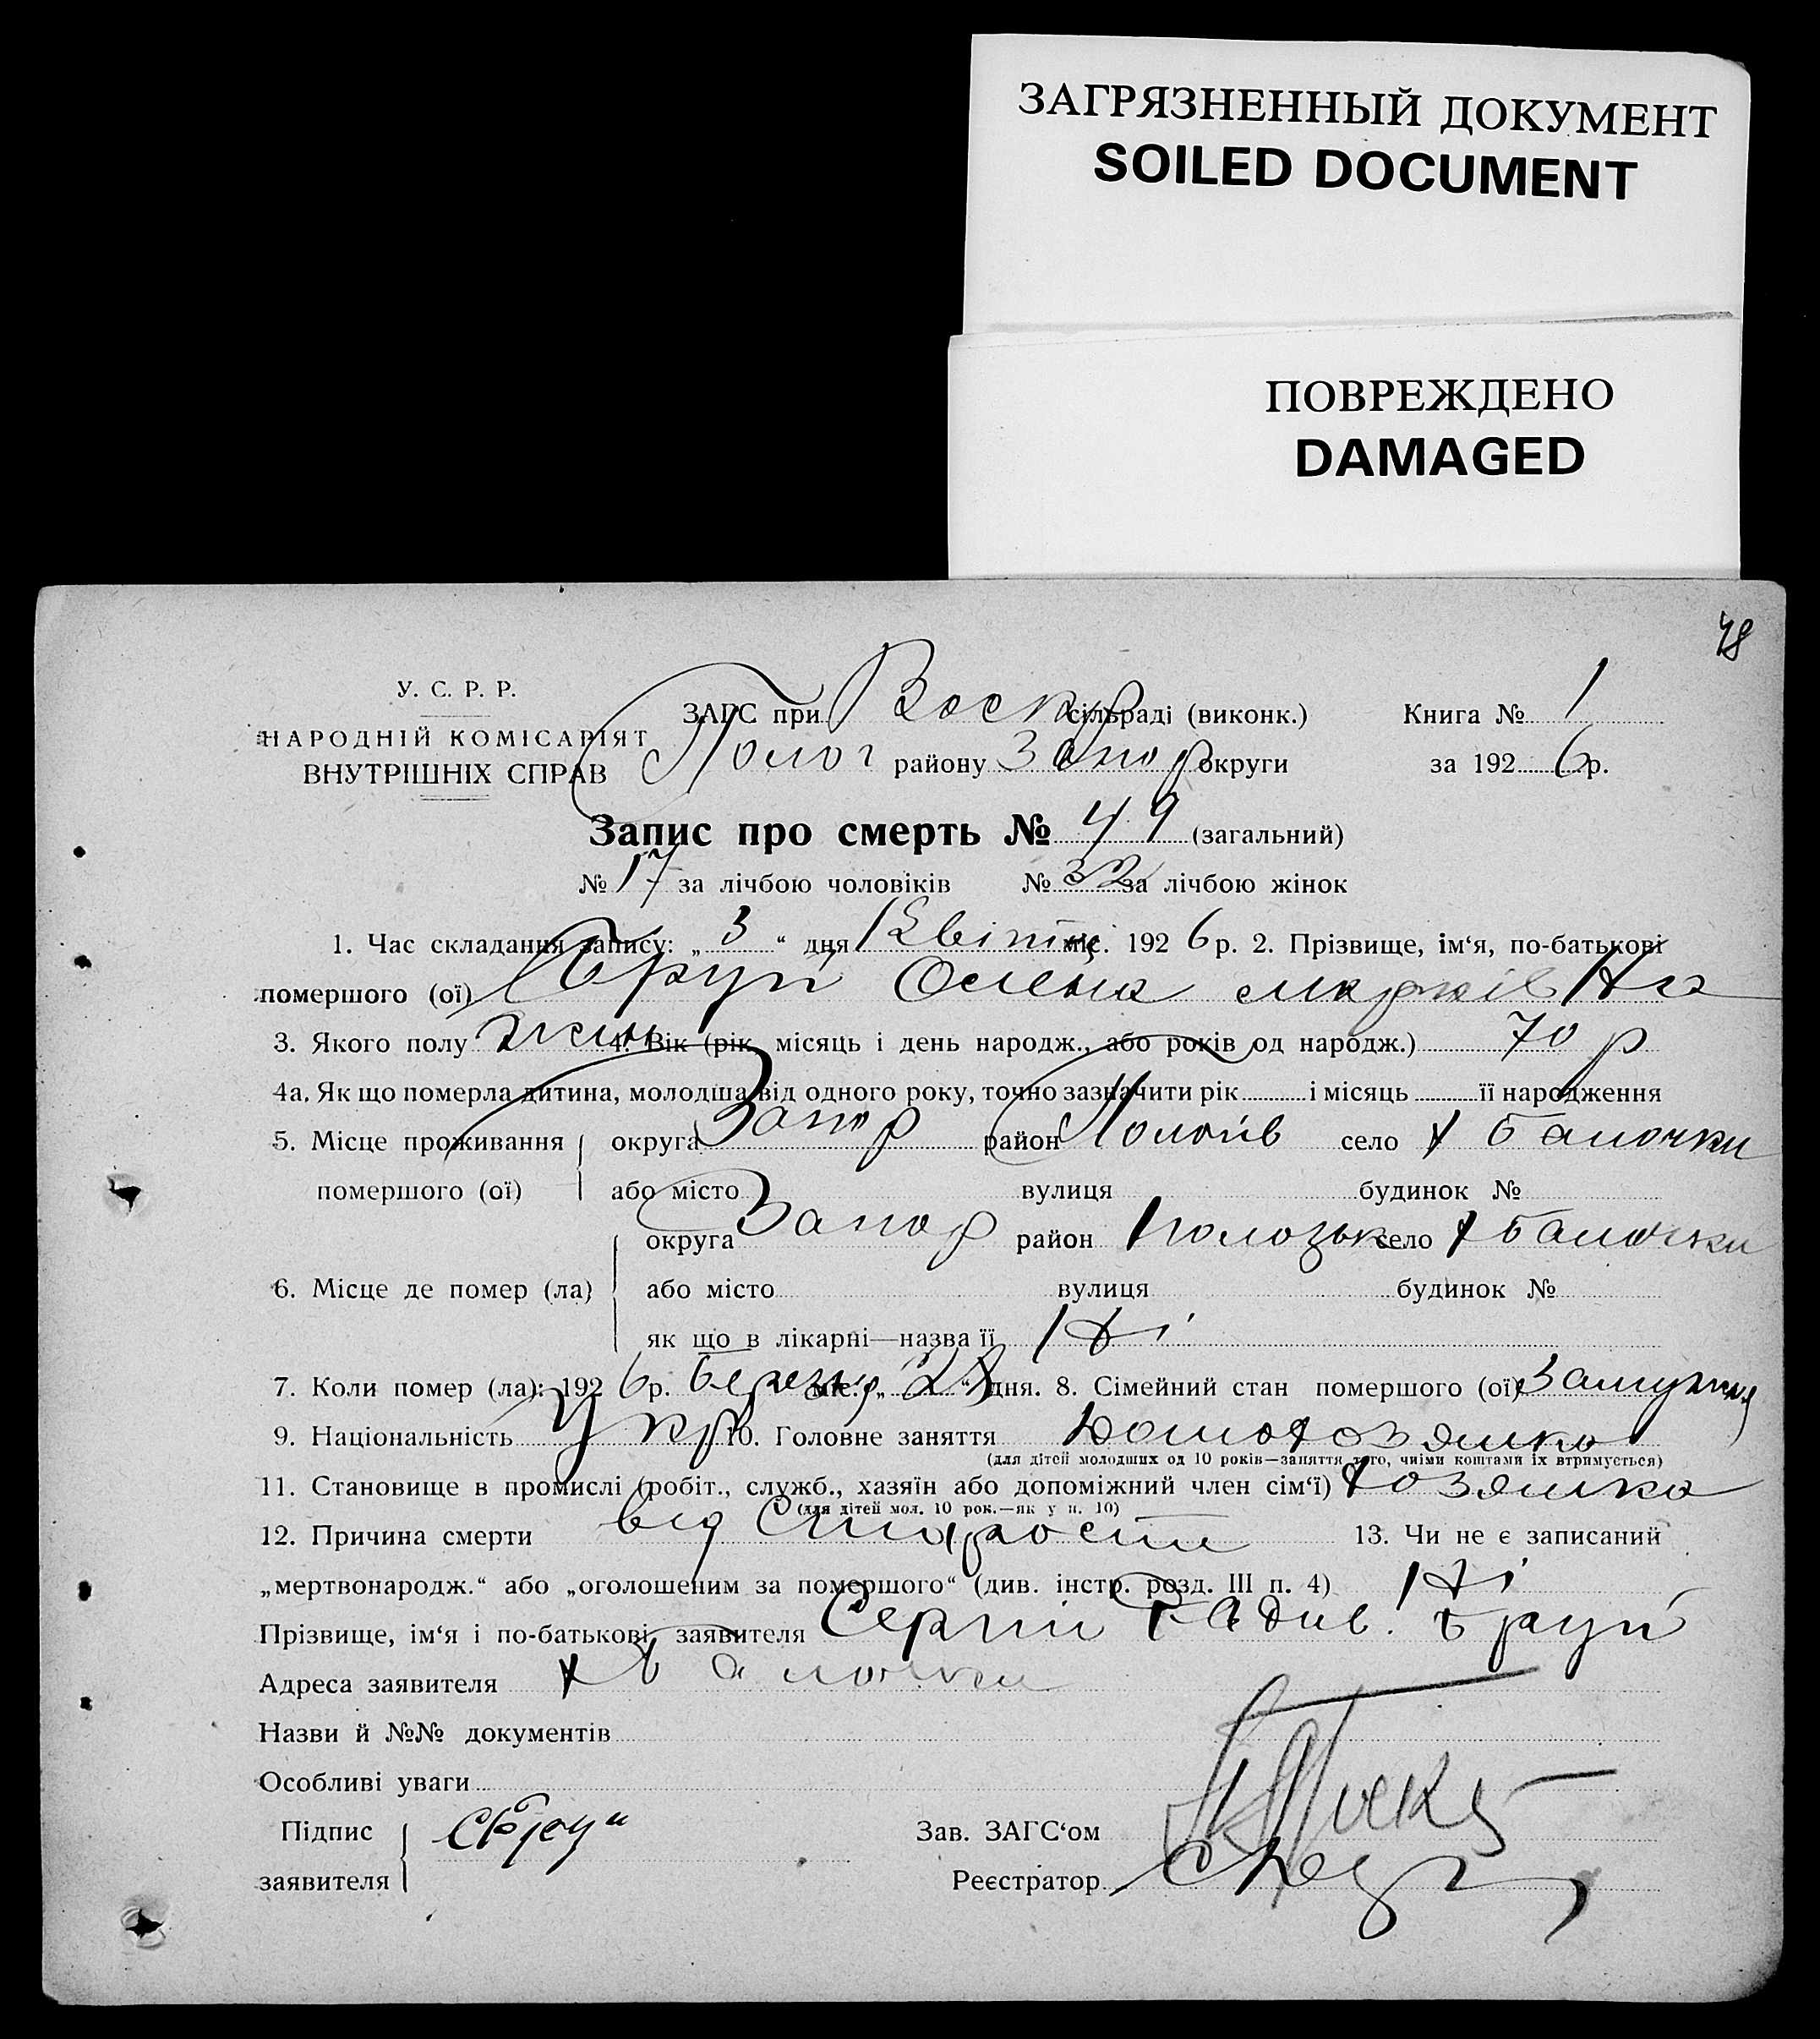 ЗАГРЯЗНЕННЫЙ ДОКУМЕНТ
SOILED DOCUMENT
ПОВРЕЖДЕНО
DAMAGED
48
У. С. Р. Р.
НАРОДНІЙ КОМІСАРІЯТ
ВНУТРІШНІХ СПРАВ
ЗАГС при Воскр сільраді (виконк.) Книга № 1
Полог району Запор округи за 1926 р.
Запис про смерть № 49 (загальний)
№ 17 за лічбою чоловіків № 32 за лічбою жінок
1. Час складання запису: „ 3 “ дня Квітня міс. 1926 р. 2. Прізвище, ім‘я, по-батькові
помершого (ої) Бруй Олена Марківна
3. Якого полу жін 4. Вік (рік, місяць і день народж., або років од народж.) 70 р
4а. Як що померла дитина, молодша від одного року, точно зазначити рік і місяць її народження
5. Місце проживання округа Запор район Пологів село х Балочки
помершого (ої) або місто вулиця будинок №
округа Запор район Пологськ село х Балочки
6. Місце де помер (ла) або місто вулиця будинок №
як що в лікарні—назва її Ні
7. Коли помер (ла): 1926 р. березня міс. „ 28 “ дня. 8. Сімейний стан помершого (ої) Замужня
9. Національність Укр 10. Головне заняття Домохозяйка
(для дітей молодших од 10 років—заняття того, чиїми коштами їх втримується)
11. Становище в промислі (робіт., служб., хазяїн або допоміжний член сім‘ї) хозяйка
(для дітей мол. 10 рок.—як у п. 10)
12. Причина смерти від старости 13. Чи не є записаний
„мертвонародж.“ або „оголошеним за помершого“ (див. інстр. розд. III п. 4) Ні
Прізвище, ім‘я і по-батькові заявителя Сергій Радив. Бруй
Адреса заявителя х Балочки
Назви й №№ документів
Особливі уваги
Підпис СБруй Зав. ЗАГС‘ом
заявителя Реєстратор